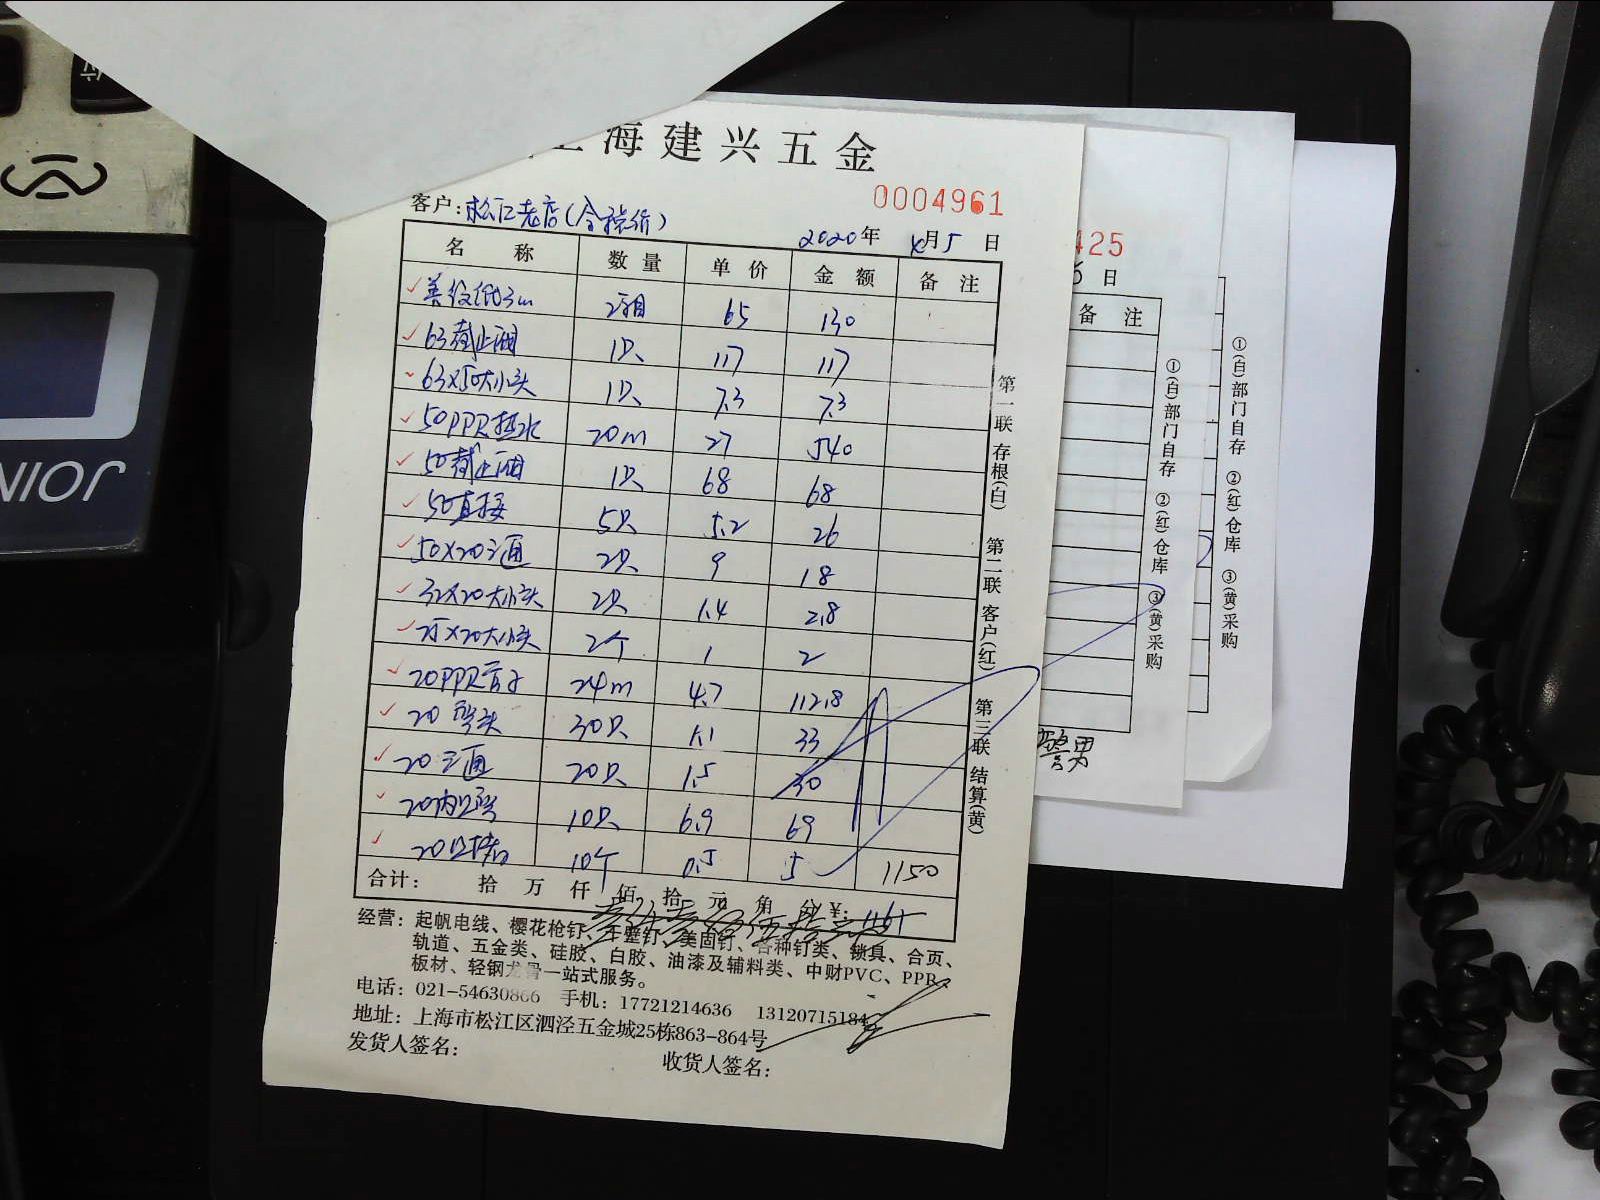 上海建兴五金
0004961
客户：松江老店（含税价）
2020年 4月5日
名称 数量 单价 金额 备注
65 130
63截止阀 1只 117 117
63X50大小头 1只 7.3 7.3
50PPR热水 20m 27 540
50截止阀 1只 68 68
50直接 5只 5.2 26
50X20三通 2只 9 18
32X20大小头 2只 1.4 2.8
25X20大小头 2个 1 2
20PPR管子 24m 4.7 112.8
20弯头 30只 1.1 33
20三通 20只 1.5 30
20内丝弯 10只 6.9 69
20 10个 0.5 5 1150
合计： 拾 万 仟 佰 拾 元 角 分 ¥: 1161
第一联 存根(白) 第二联 客户(红) 第三联 结算(黄)
经营：起帆电线、樱花枪钉、美固钉、各种钉类、锁具、合页、
轨道、五金类、硅胶、白胶、油漆及辅料类、中财PVC、PPR、
板材、轻钢龙骨一站式服务。
电话：021-54630866 手机：17721214636 13120715184
地址：上海市松江区泗泾五金城25栋863-864号
发货人签名： 收货人签名：
425
5日
备注
①(白)部门自存 ②(红)仓库 ③(黄)采购
①(白)部门自存 ②(红)仓库 ③(黄)采购
JOIN